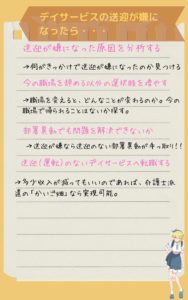 デイサービスの送迎が嫌に
なったら・・・
送迎が嫌になった原因を分析する
→何がきっかけで送迎が嫌になったのか見つける
今の職場を辞める以外の選択肢を増やす
→職場を変えると、どんなことが変わるのか。今の
職場で得られることはないか探す。
部署異動でも問題を解決できないか
→送迎が嫌なら送迎のない部署異動が手っ取り!!
送迎(運転)のないデイサービスへ転職する
→多少収入が減ってもいいのであれば、介護士派
遣の「かいご畑」なら実現可能。